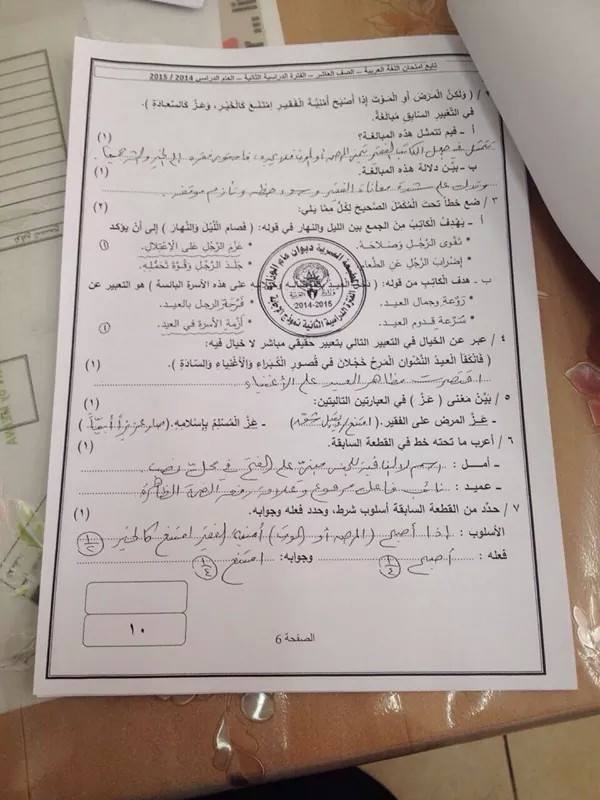 تابع امتحان اللغة العربية – الصف العاشر – الفترة الدراسية الثانية – العام الدراسي 2014 / 2015
/ ( وَلكِنَّ المَرَضَ أو المَوْتَ إذَا أصْبَحَ أمْنِيَّةَ الفَقيـرِ امْتَنَعَ كَالخَيْـرِ، وَعَزَّ كَالسَّعادَةِ ).
في التَّعْبيرِ السَّابِقِ مُبالَغَةٌ.
أ – فيمَ تتمثل هذه المبالغة؟ (١)
تتمثل في جعل الكاتب الفقير يتمنى المرض أو الموت فلا يجده،
ب – بَيِّنْ دلالة هذه المبالغة. (١)
وتدل على شدة معاناة الفقير وسوء حظه وتأزم موقفه.
٣ / ضع خطاً تحتَ المُكَمِّلِ الصَّحيحِ لِكُلٍّ ممَّا يَلي: (٢)
أ – يَهْدِفُ الكَاتِبُ مِنَ الجمع بين الليل والنهار في قوله: ( فصَامَ اللَّيْلَ وَالنَّهارَ ) إلى أنْ يؤكد
• تقوى الرَّجُـلِ وَصَـلاحَـهُ. • عَزْمَ الرَّجُلِ عَلى الاعْتِقالِ. (١)
• إضْرَابَ الرَّجُلِ عَنِ الطَّعامِ • جَلَـدَ الرَّجُلِ وَقُـوَّةَ تَحَمُّلِـهِ.
ب - هدف الكاتب من قوله: على هذه الأسرة البائسة ) هو التعبير عن
• رَوْعَـةِ وجمال العيـد. • فَرْحَـةِ الرجل بالعيـد.
• سُـرْعَـةِ قـدوم العيـد. • أزْمَةِ الأسرة في العيد. (١)
٤ / عبر عن الخيال في التعبير التالي بتعبير حقيقي مباشر لا خيال فيه:
( فَانْكَفَأ العيدُ النَّشْوانُ المَرِحُ خَجْلانَ في قُصورِ الكُبَراءِ وَالأغْنِياءِ وَالسَّادَةِ ). (١)
اقتصرت مظاهر العيد على الأغنياء
٥ / بَيِّنْ مَعْنى ( عَزَّ ) في العبارتين التاليتين: (١)
– عَـزَّ المرضُ على الفقير. – عَزَّ المُسْلِمُ بِإسْلامِهِ.
٦ / أعرب ما تحته خط في القطعة السابقة. (١)
– أمـل : اسم لا النافية للجنس مبني على الفتح في محل نصب
– عميد : نائب فاعل مرفوع وعلامة رفعه الضمة الظاهرة
٧ / حدّد من القطعة السابقة أسلوب شرط، وحدد فعله وجوابه. (١)
الأسلوب : إذا أصبح (المرض أو الموت) أمنية الفقير امتنع كالخير
فعله : أصبح وجوابه: امتنع
١٠
الصفحة 6
2014-2015